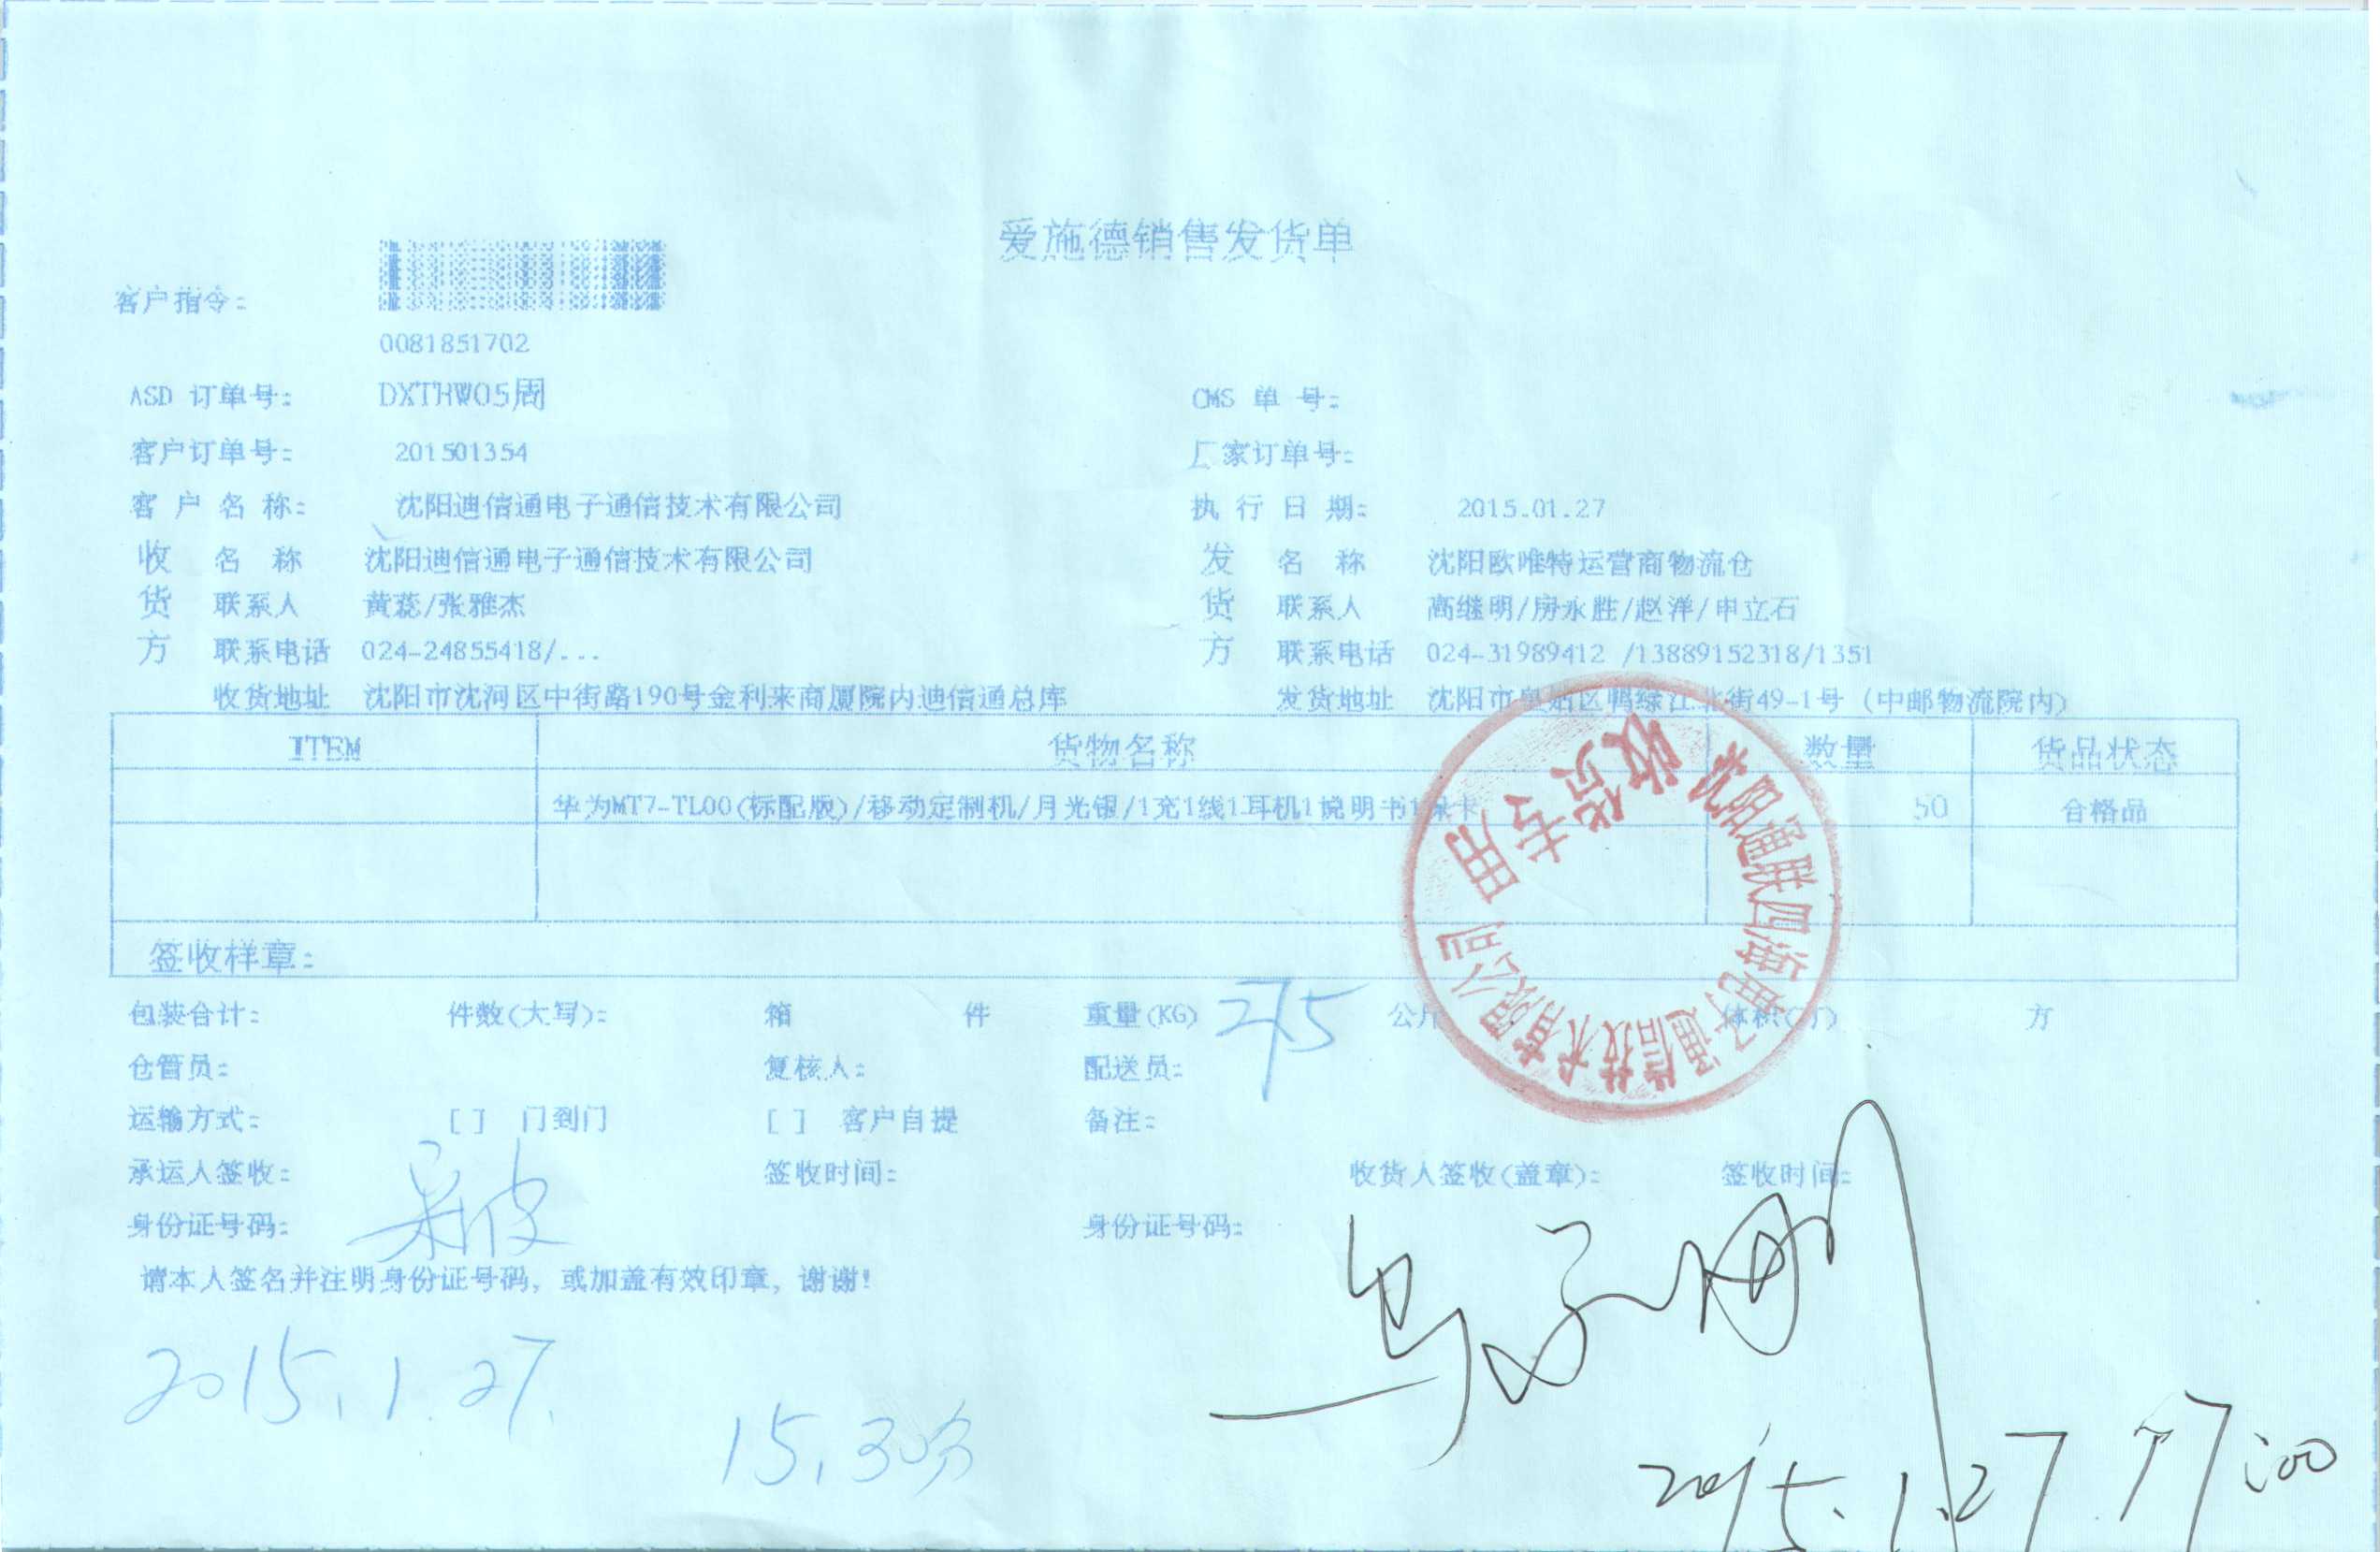 爱施德销售发货单
客户指令:
0081851702
ASD 订单号: DXTHW05周 CMS 单 号:
客户订单号: 201501354 厂家订单号:
客 户 名 称: 沈阳迪信通电子通信技术有限公司 执 行 日 期: 2015.01.27
收 名 称 沈阳迪信通电子通信技术有限公司 发 名 称 沈阳欧唯特运营商物流仓
货 联系人 黄蕊/张雅杰 货 联系人 高继明/房永胜/赵洋/申立石
方 联系电话 024-24855418/... 方 联系电话 024-31989412 /13889152318/1351
收货地址 沈阳市沈河区中街路190号金利来商厦院内迪信通总库 发货地址 沈阳市皇姑区鸭绿江北街49-1号 (中邮物流院内)
ITEM 货物名称 数量 货品状态
华为MT7-TL00(标配版)/移动定制机/月光银/1充1线1耳机1说明书1保卡 50 合格品
签收样章:
收货专用
通联四海电子通信技术有限公司
包装合计: 件数(大写): 箱 件 重量(KG) 275 公斤 体积(方) 方
仓管员: 复核人: 配送员:
运输方式: [ ] 门到门 [ ] 客户自提 备注:
承运人签收: 签收时间: 收货人签收(盖章): 签收时间:
身份证号码: 身份证号码:
请本人签名并注明身份证号码, 或加盖有效印章, 谢谢!
2015.1.27.
15.30分
2015.1.27 17:00